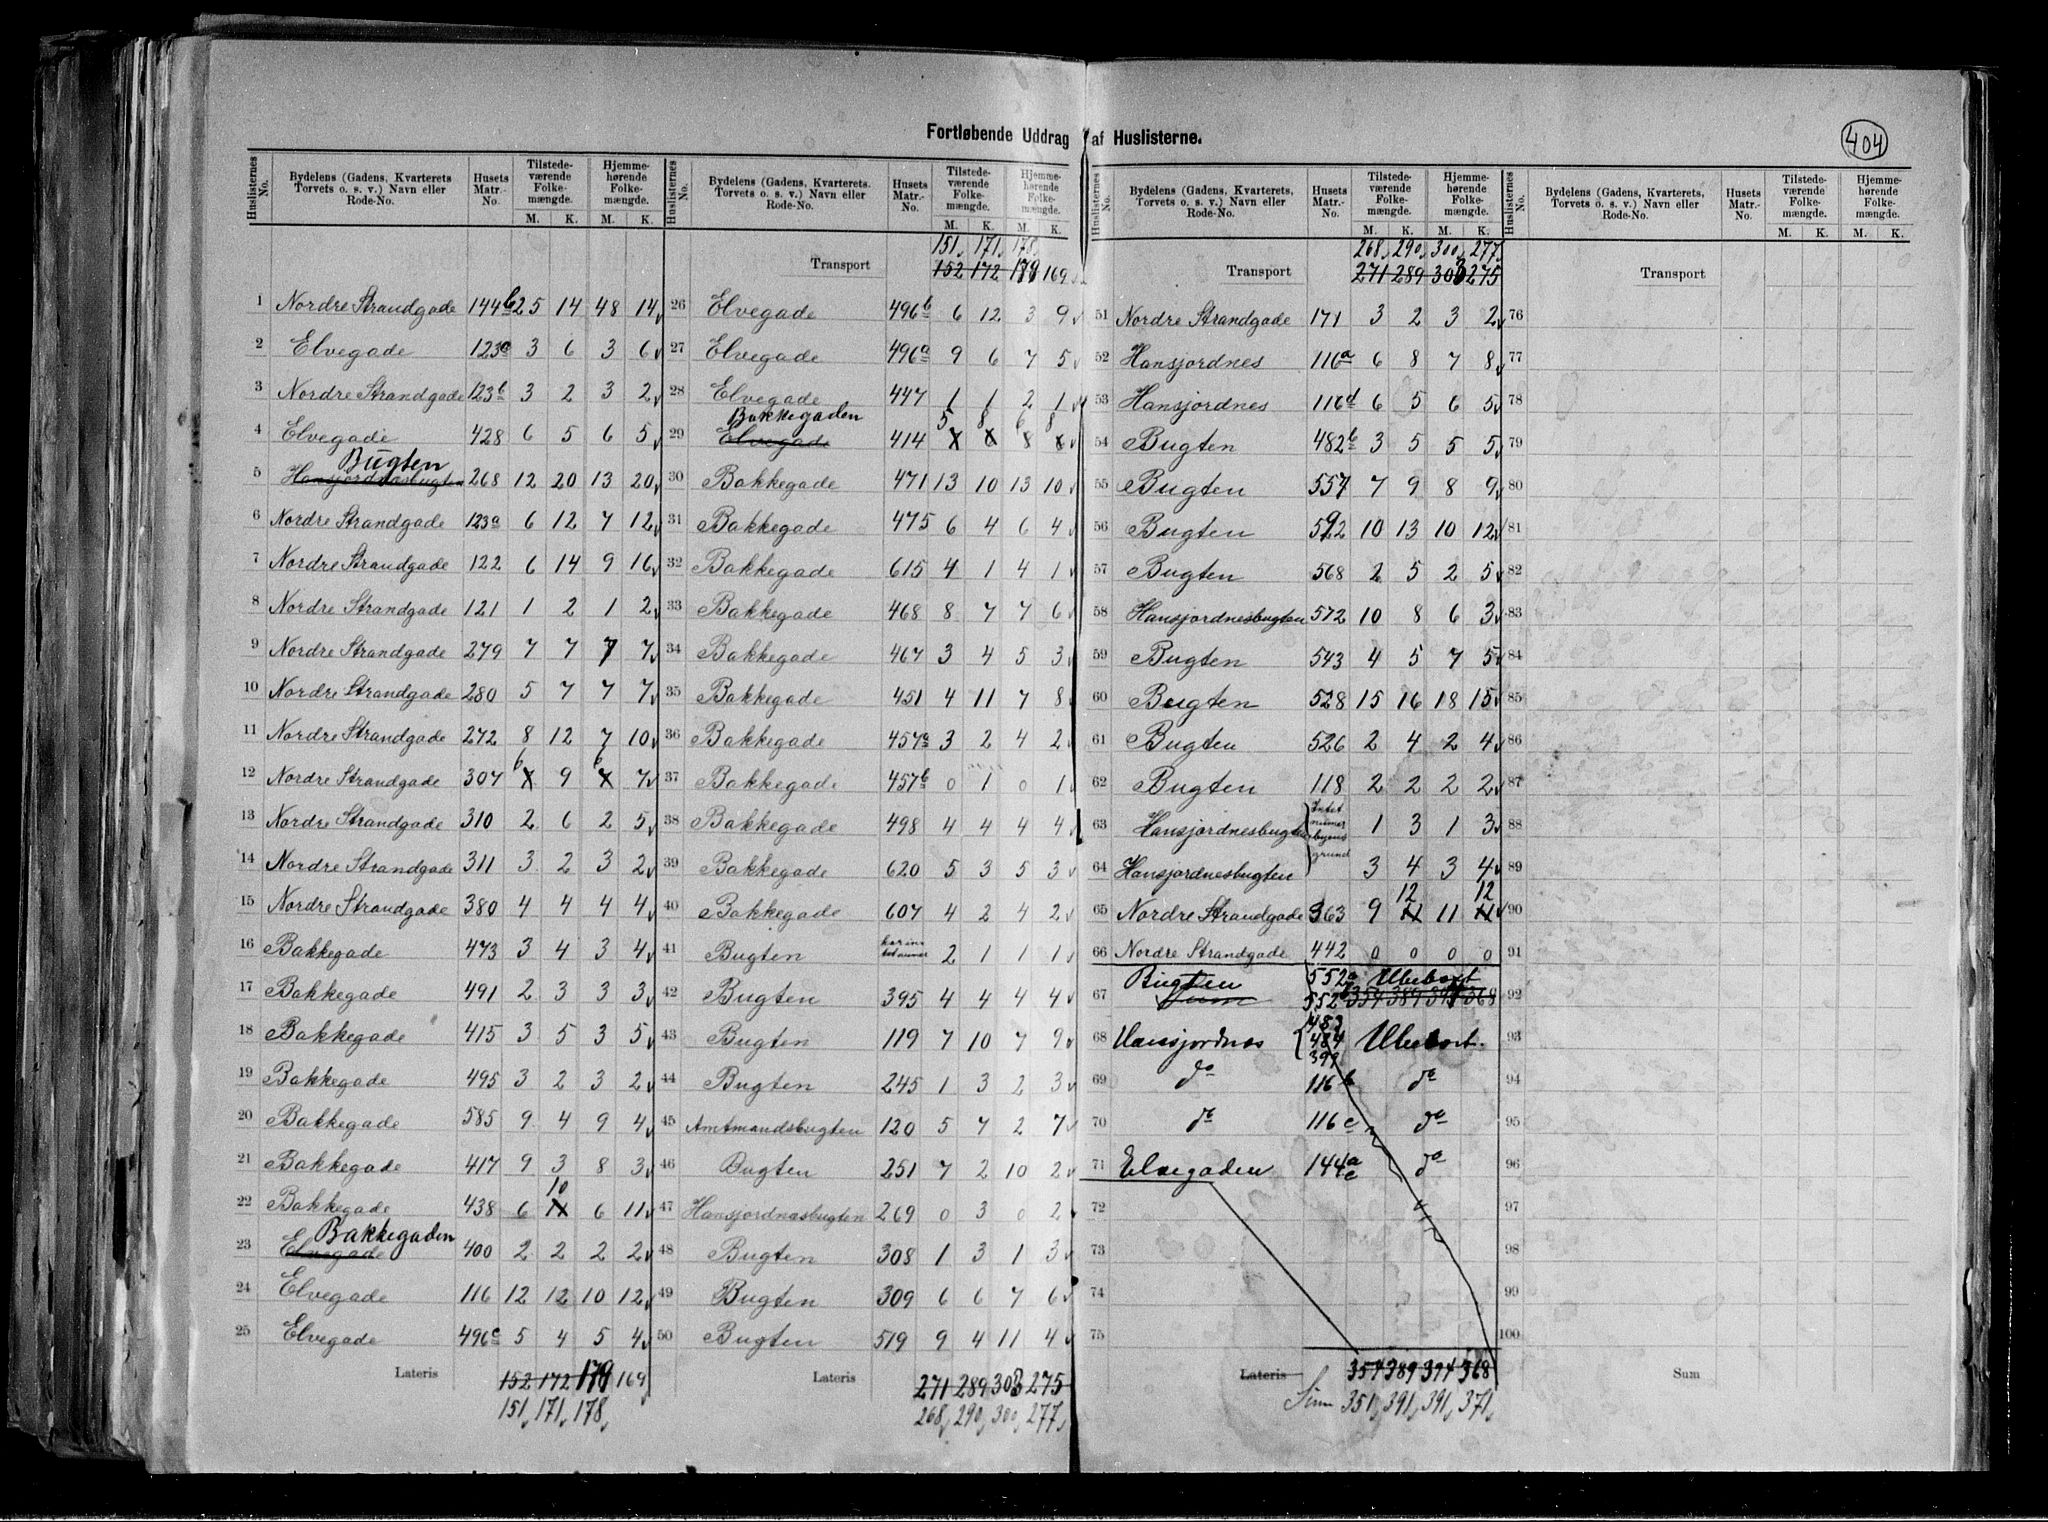 404
Fortløbende Uddrag af Huslisterne.
Huslisternes No. | Bydelens (Gadens, Kvarterets, Torvets o. s. v.) Navn eller Rode-No. | Husets Matr.-No. | Tilstedeværende Folkemængde. M. K. | Hjemmehørende Folkemængde. M. K.
1 Nordre Strandgade 144b 25 14 48 14
2 Elvegade 123a 3 6 3 6
3 Nordre Strandgade 123b 3 2 3 2
4 Elvegade 428 6 5 6 5
Bugten
5 Hansjordnæsbugten 268 12 20 13 20
6 Nordre Strandgade 123a 6 12 7 12
7 Nordre Strandgade 122 6 14 9 16
8 Nordre Strandgade 121 1 2 1 2
9 Nordre Strandgade 279 7 7 7 7
10 Nordre Strandgade 280 5 7 7 7
11 Nordre Strandgade 272 8 12 7 10
12 Nordre Strandgade 307 6 9 6 7
13 Nordre Strandgade 310 2 6 2 5
14 Nordre Strandgade 311 3 2 3 2
15 Nordre Strandgade 380 4 4 4 4
16 Bakkegade 473 3 4 3 4
17 Bakkegade 491 2 3 3 3
18 Bakkegade 415 3 5 3 5
19 Bakkegade 495 3 2 3 2
20 Bakkegade 585 9 4 9 4
21 Bakkegade 417 9 3 8 3
10
22 Bakkegade 438 6 11 6 11
Bakkegaden
23 Elvegade 400 2 2 2 2
24 Elvegade 116 12 12 10 12
25 Elvegade 496c 5 4 5 4
Lateris 152 172 179 169
151 171 178
Huslisternes No. | Bydelens (Gadens, Kvarterets, Torvets o. s. v.) Navn eller Rode-No. | Husets Matr.-No. | Tilstedeværende Folkemængde. M. K. | Hjemmehørende Folkemængde. M. K.
151 171 178
Transport 152 172 179 169
26 Elvegade 496b 6 12 3 9
27 Elvegade 496a 9 6 7 5
28 Elvegade 447 1 1 2 1
Bakkegaden 5 8 6 8
29 Elvegade 414
30 Bakkegade 471 13 10 13 10
31 Bakkegade 475 6 4 6 4
32 Bakkegade 615 4 1 4 1
33 Bakkegade 468 8 7 7 6
34 Bakkegade 467 3 4 5 3
35 Bakkegade 451 4 11 7 8
36 Bakkegade 457a 3 2 4 2
37 Bakkegade 457b 0 1 0 1
38 Bakkegade 498 4 4 4 4
39 Bakkegade 620 5 3 5 3
40 Bakkegade 607 4 2 4 2
41 Bugten 2 1 1 1
42 Bugten 395 4 4 4 4
43 Bugten 119 7 10 7 9
44 Bugten 245 1 3 2 3
45 Amtmandsbugten 120 5 7 2 7
46 Bugten 251 7 2 10 2
47 Hansjordnæsbugten 269 0 3 0 2
48 Bugten 308 1 3 1 3
49 Bugten 309 6 6 7 6
50 Bugten 519 9 4 11 4
Lateris 271 289 303 275
268 290 300 277
Huslisternes No. | Bydelens (Gadens, Kvarterets, Torvets o. s. v.) Navn eller Rode-No. | Husets Matr.-No. | Tilstedeværende Folkemængde. M. K. | Hjemmehørende Folkemængde. M. K.
268 290 300 277
Transport 271 289 303 275
51 Nordre Strandgade 171 3 2 3 2
52 Hansjordnes 116a 6 8 7 8
53 Hansjordnes 116d 6 5 6 5
54 Bugten 482b 3 5 5 5
55 Bugten 557 7 9 8 9
56 Bugten 592 10 13 10 12
57 Bugten 568 2 5 2 5
58 Hansjordnesbugten 572 10 8 6 3
59 Bugten 543 4 5 7 5
60 Bugten 528 15 16 18 15
61 Bugten 526 2 4 2 4
62 Bugten 118 2 2 2 2
63 Hansjordnesbugten Intet numer bygens grund 1 3 1 3
64 Hansjordnesbugten 3 4 3 4
12 12
65 Nordre Strandgade 363 9 11 11 11
66 Nordre Strandgade 442 0 0 0 0
Bugten 552a Ubeboet
67 Sum 552b 354 389 394 368
68 Hansjordnæs 483 484 399 Ubeboet.
69 do 116b do
70 do 116c do
71 Elvegaden 144a c do
72
73
74
75
Lateris 354 389 394 368
Sum 351 391 391 371
Huslisternes No. | Bydelens (Gadens, Kvarterets, Torvets o. s. v.) Navn eller Rode-No. | Husets Matr.-No. | Tilstedeværende Folkemængde. M. K. | Hjemmehørende Folkemængde. M. K.
Transport
76
77
78
79
80
81
82
83
84
85
86
87
88
89
90
91
92
93
94
95
96
97
98
99
100
Sum